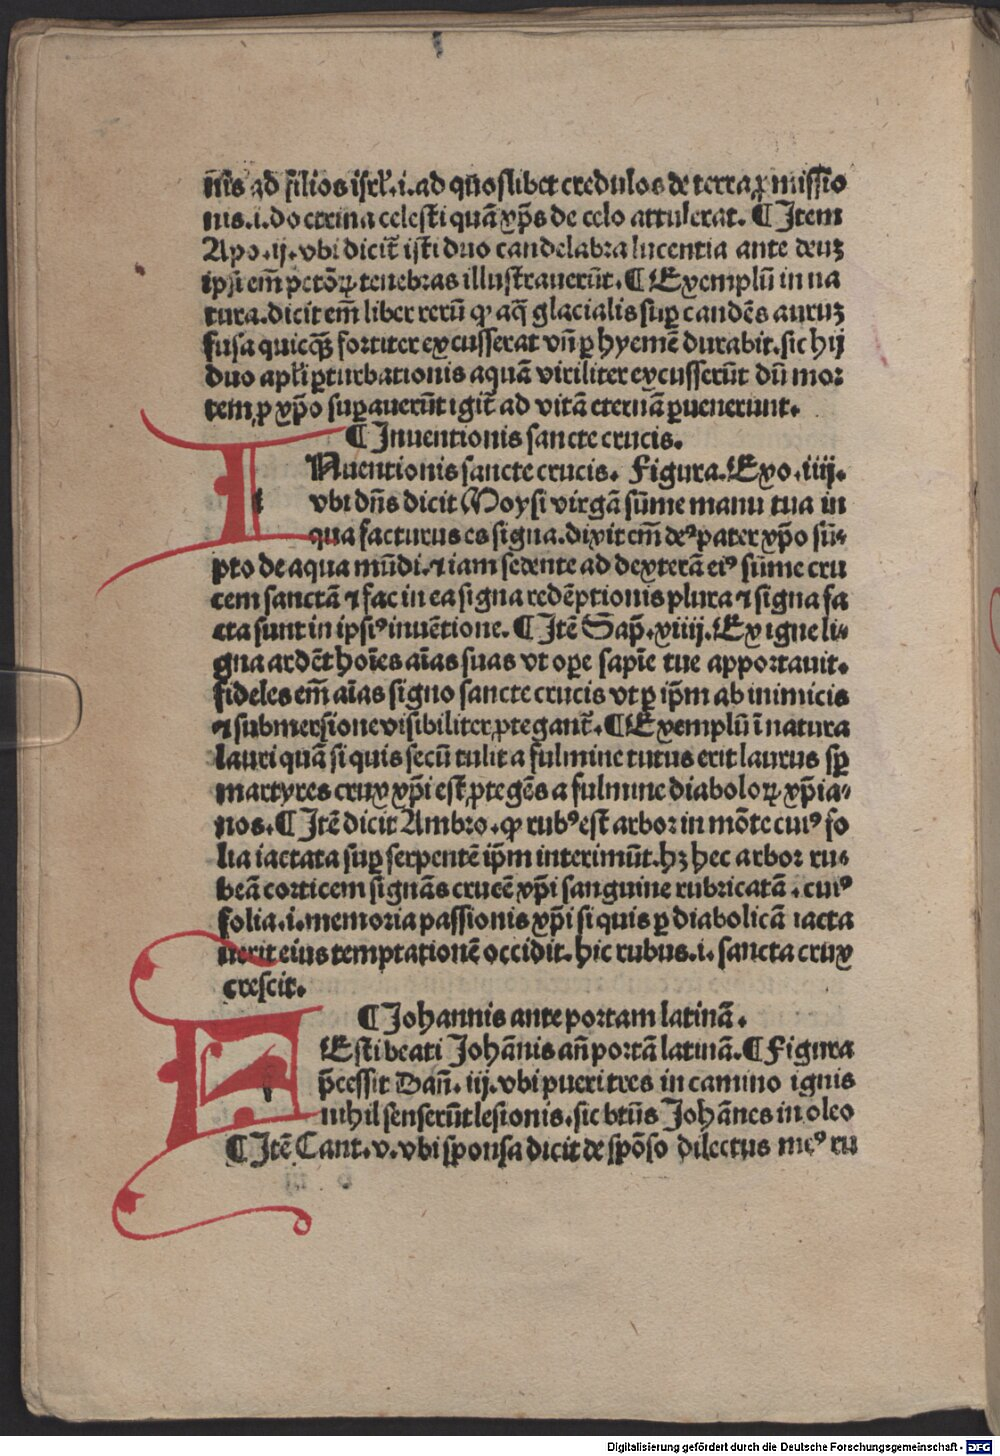 n̄is ad filios isrl̄.i.ad qūoslibet credulos de terra ꝓmissio
nis.i.doctrina celesti quā xp̄s de celo attulerat. ¶ Item
Apo.ij.vbi dicit̄ isti duo candelabra lucentia ante deuz
ipsi em̄ pctōꝝ tenebras illustrauerūt. ¶ Exemplū in na
tura.dicit em̄ liber rerū ꝙ aq̄ glacialis suꝑ candēs auruz
fusa quicq̄ꝫ fortiter excusserat vn̄ ꝑ hyemē durabit.sic hij
duo apl̄i ꝑturbationis aquā viriliter excusserūt dū mor
tem ꝓ xp̄o suꝑauerūt igit̄ ad vitā eternā ꝑuenerunt.
¶ Inuentionis sancte crucis.
INuentionis sancte crucis. Figura. Exo.iiij.
vbi dn̄s dicit Moysi virgā sūme manu tua in
qua facturus es signa.dixit em̄ deꝰ pater xp̄o sū-
pto de aqua mūdi.⁊ iam sedente ad dexterā eiꝰ sūme cru
cem sanctā ⁊ fac in ea signa redēptionis plura ⁊ signa fa
cta sunt in ipsiꝰ inuētione. ¶ Itē Sap̄.xiiij. Ex igne li-
gna ardēt hoīes aīas suas vt oꝑe sapīe tue apportauit.
fideles em̄ aīas signo sancte crucis vt ꝑ ip̄m ab inimicis
⁊ submersione visibiliter ꝓtegant̄. ¶ Exemplū ī natura
lauri quā si quis secū tulit a fulmine tutus erit laurus sꝑ
martyres crux xp̄i est ꝓtegēs a fulmine diaboloꝝ xp̄ia-
nos. ¶ Itē dicit Ambro.ꝙ rubꝰ est arbor in mōte cuiꝰ fo
lia iactata suꝑ serpentē ip̄m interimūt.hꝫ hec arbor ru-
beā corticem signās crucē xp̄i sanguine rubricatā.cuiꝰ
folia.i.memoria passionis xp̄i si quis ꝑ diabolicā iacta
uerit eius temptationē occidit.hic rubus.i.sancta crux
crescit.
¶ Iohannis ante portam latinā.
FEsti beati Iohānis an̄ portā latinā. ¶ Figura
p̄cessit Dan̄.iij.vbi pueri tres in camino ignis
nihil senserūt lesionis.sic btūs Iohānes in oleo
¶ Itē Cant.v.vbi sponsa dicit de spōso dilectus meꝰ ru
Digitalisierung gefördert durch die Deutsche Forschungsgemeinschaft - DFG